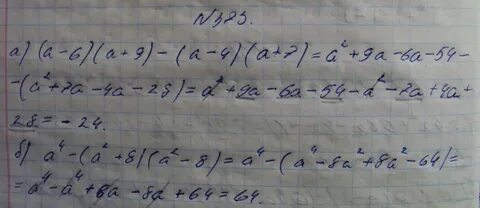 № 323.
а) (a-6)(a+9)-(a-4)(a+7)=a²+9a-6a-54-
-(a²+7a-4a-28)=a²+9a-6a-54-a²-7a+4a+
28=-24.
б) a⁴-(a²+8)(a²-8)=a⁴-(a⁴-8a²+8a²-64)=
=a⁴-a⁴+8a-8a+64=64.